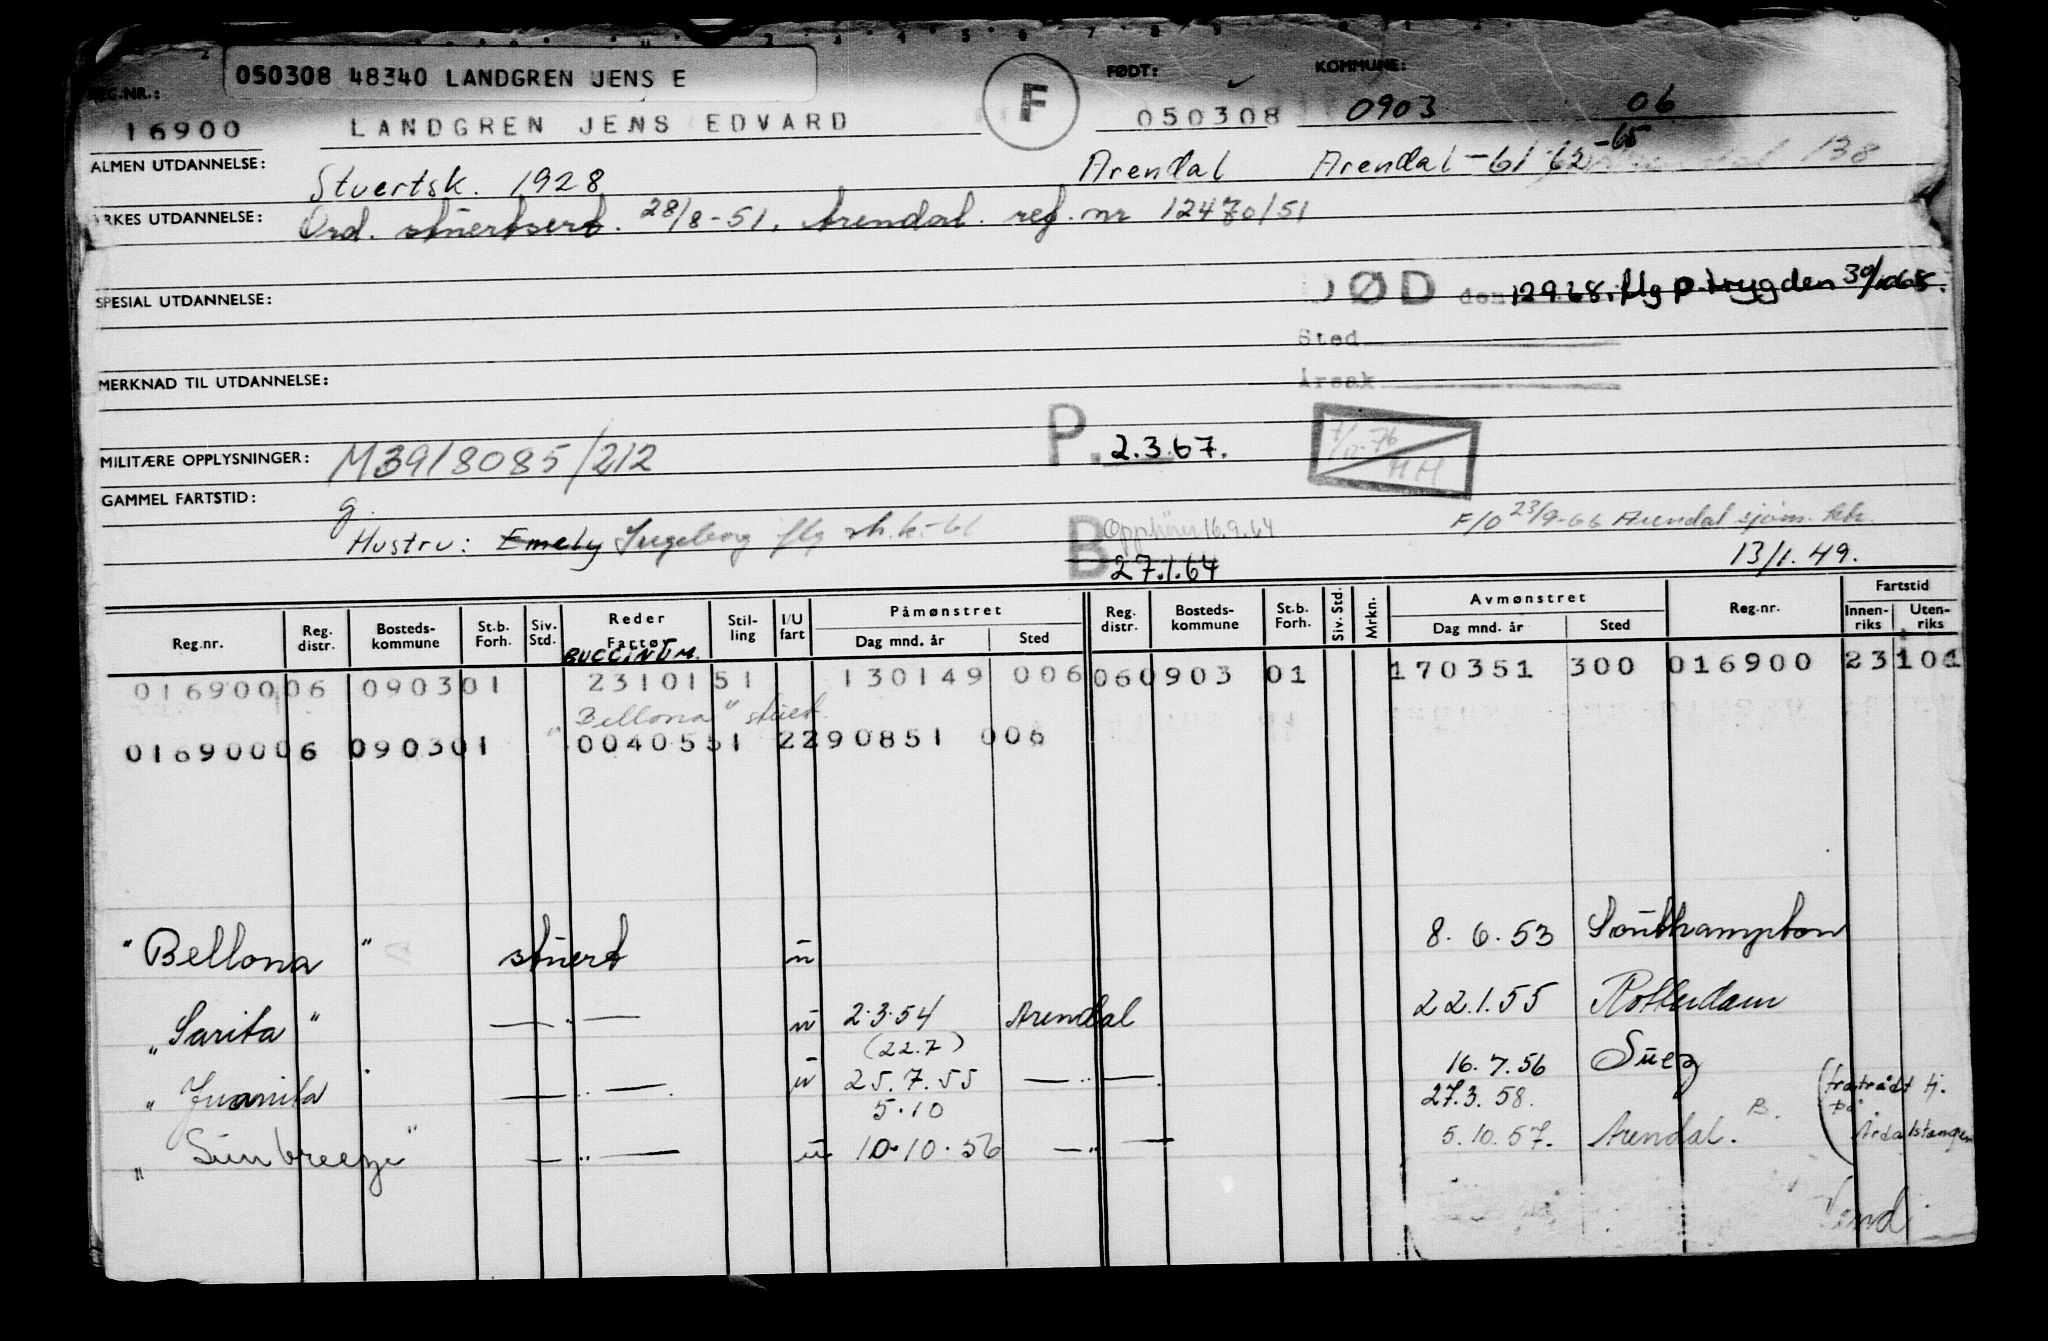 050308 48340 LANDGREN JENS E
REG.NR.: FØDT: KOMMUNE:
16900 LANDGREN JENS EDVARD F 050308 0903 06
ALMEN UTDANNELSE: Stuertsk. 1928 Arendal Arendal -61 62 -65 138
YRKES UTDANNELSE: Ord. stuertsert. 28/8-51, Arendal. reg. nr 12470/51
SPESIAL UTDANNELSE: DØD den 12.9.68. flg p.trygden 30/10 68.
Sted
MERKNAD TIL UTDANNELSE: Årsak
MILITÆRE OPPLYSNINGER: M39/8085/212 P. 2.3.67.
GAMMEL FARTSTID: g.
Hustru: Emely Ingeborg flg sh.k.-61 B Opphører 16.9.64 F/O 23/9-66 Arendal sjøm. ktr.
27.1.64 13/1.49.
Reg.nr. Reg. distr. Bosteds-kommune St.b. Forh. Siv. Std. Reder Fartøy Stil-ling I/U fart Påmønstret Dag mnd. år Sted Reg. distr. Bosteds-kommune St.b. Forh. Siv. Std. Mrkn. Avmønstret Dag mnd. år Sted Reg.nr. Fartstid Innen-riks Uten-riks
BUCCINUM.
016900 06 0903 01 23101 51 130149 006 06 0903 01 170351 300 016900 23 101
"Bellona" stuert.
016900 06 0903 01 00405 51 2 290851 006
"Bellona" stuert u 8.6.53 Southampton
"Sarita" —"— u 2.3.54 Arendal 22.1.55 Rotterdam
(22.7)
"Juanita —"— u 25.7.55 —"— 16.7.56 Suez
5.10 27.3.58. (fratrådt tj. på Årdalstangen
"Sunbreeze" —"— u 10.10.56 —"— 5.10.57. Arendal. B.
Vend